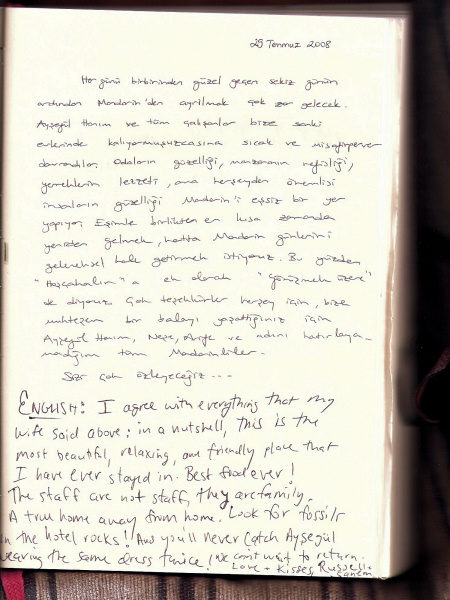 25 Temmuz 2008
Her günü birbirinden güzel geçen sekiz günün
ardından Mandarin'den ayrılmak çok zor gelecek.
Ayşegül Hanım ve tüm çalışanlar bize sanki
evlerinde kalıyormuşuzcasına sıcak ve misafirperver
davrandılar. Odaların güzelliği, manzaranın nefisliği,
yemeklerin lezzeti, ama herşeyden önemlisi
insanların güzelliği Mandarin'i eşsiz bir yer
yapıyor. Eşimle birlikte en kısa zamanda
yeniden gelmek, hatta Mandarin günlerini
geleneksel hale getirmek istiyoruz. Bu yüzden
"Hoşçakalın"a ek olarak "Görüşmek üzere"
de diyoruz. Çok teşekkürler herşey için, bize
muhteşem bir balayı yaşattığınız için
Ayşegül Hanım, Neşe, ve adını hatırlaya-
madığım tüm Mandarinliler.
Sizi çok özleyeceğiz...
ENGLISH: I agree with everything that my
wife said above; in a nutshell, this is the
most beautiful, relaxing, and friendly place that
I have ever stayed in. Best food ever!
The staff are not staff, they are family.
A true home away from home. Look for fossils
in the hotel rocks! And you'll never catch Ayşegül
wearing the same dress twice! We can't wait to return.
Love + Kisses, Russell +
Sanem